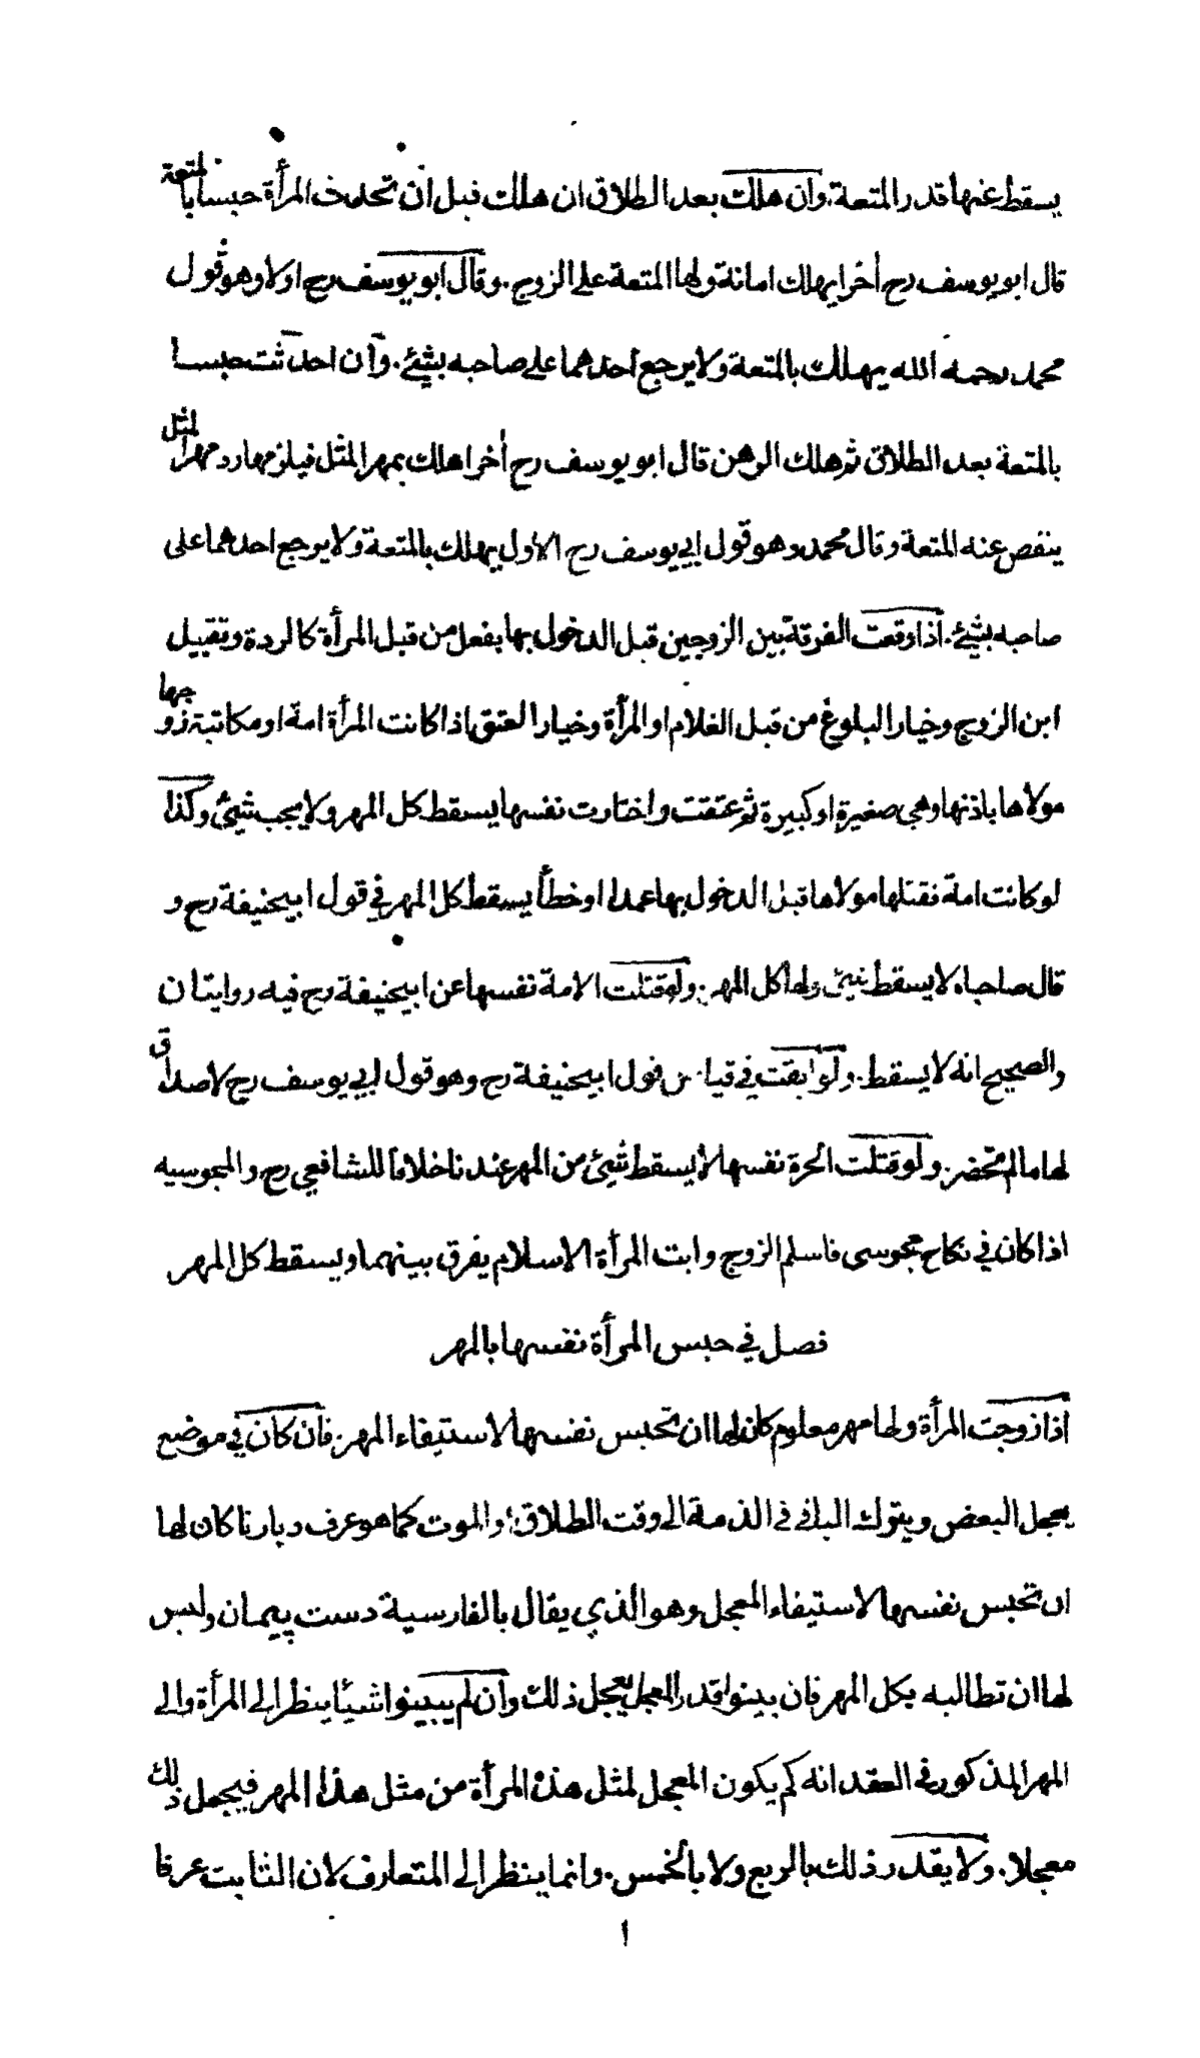 يسقط عنها قدر المتعة. وان هلك بعد الطلاق ان هلك قبل ان تحدث المرأة حبسا بالمتعة
قال ابو يوسف رح أخرا يهلك امانة ولها المتعة على الزوج. وقال ابو يوسف رح اولا وهو قول
محمد رحمه الله يهلك بالمتعة ولا يرجع احدهما على صاحبه بشيئ. وان احدثت حبسا
بالمتعة بعد الطلاق ثم هلك الرهن قال ابو يوسف رح أخرا هلك بمهر المثل فيلزمها رد مهر المثل
ينقص عنه المتعة وقال محمد وهو قول ابي يوسف رح الأول يهلك بالمتعة ولا يرجع احدهما على
صاحبه بشيئ. اذا وقعت الفرقة بين الزوجين قبل الدخول بها بفعل من قبل المرأة كالردة وتقبيل
ابن الزوج وخيار البلوغ من قبل الغلام او المرأة وخيار العتق اذا كانت المرأة امة او مكاتبة زوجها
مولاها باذنها وهي صغيرة او كبيرة ثم عتقت واختارت نفسها يسقط كل المهر ولا يجب شيئ وكذا
لو كانت امة فقتلها مولاها قبل الدخول بها عمدا او خطأ يسقط كل المهر في قول ابيحنيفة رح و
قال صاحباه لا يسقط شيئ ولها كل المهر. ولو قتلت الامة نفسها عن ابيحنيفة رح فيه روايتان
والصحيح انه لا يسقط. ولو ابقت في قياس قول ابيحنيفة رح وهو قول ابي يوسف رح لا صداق
لها مالم تحضر. ولو قتلت الحرة نفسها لا يسقط شيئ من المهر عندنا خلافا للشافعي رح والمجوسيه
اذا كان في نكاح مجوسى فاسلم الزوج وابت المرأة الاسلام يفرق بينهما ويسقط كل المهر
فصل في حبس المرأة نفسها بالمهر
اذا زوجت المرأة ولها مهر معلوم كان لها ان تحبس نفسها لاستيفاء المهر. فان كان في موضع
يعجل البعض ويترك الباقي في الذمة الى وقت الطلاق او الموت كما هو عرف ديارنا كان لها
ان تحبس نفسها لاستيفاء المعجل وهو الذي يقال بالفارسية دست پيمان وليس
لها ان تطالبه بكل المهر فان بينوا قدر المعجل يعجل ذلك وان لم يبينوا شيئا ينظر الى المرأة والى
المهر المذكور في العقد انه كم يكون المعجل لمثل هذه المرأة من مثل هذا المهر فيجعل ذلك
معجلا. ولا يقدر ذلك بالربع ولا بالخمس. وانما ينظر الى المتعارف لان الثابت عرفا
ا